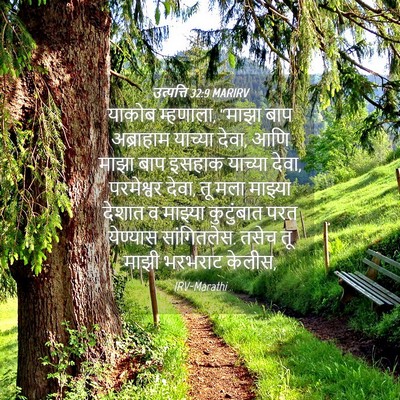 उत्पत्ति 32:9 MARIRV
याकोब म्हणाला, "माझा बाप
अब्राहाम याच्या देवा, आणि
माझा बाप इसहाक याच्या देवा,
परमेश्वर देवा, तू मला माझ्या
देशात व माझ्या कुटुंबात परत
येण्यास सांगितलेस. तसेच तू
माझी भरभराट केलीस.
IRV-Marathi